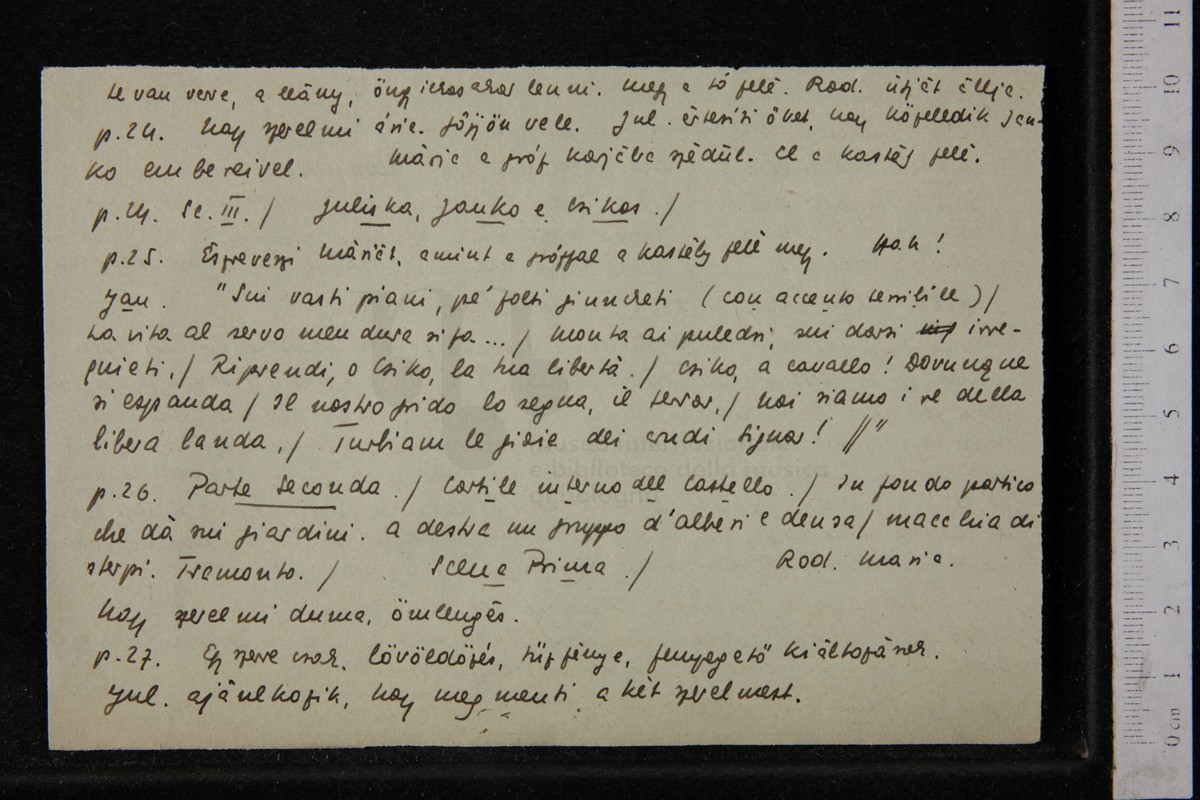 le van verve, a leány, öngyilkos akar lenni. Megy a tó felé. Rod. útját állja.
p.24. Nagy szerelmi ária. Jőjjön vele. Jul. értesíti őket, hogy közeledik Jan-
ko embereivel. Mária a gróf karjába szédül. El a kastély felé.
p.24. Sc. III. / Juliska, Janko e Csikos. /
p.25. Észreveszi Máriát, amint a gróffal a kastély felé megy. Hah!
Jan. "Sui vasti piani, pe' folti giuncheti (con accento terribile) /
La vita al servo men dura si fa... / Monta ai puledri, sui dorsi irre-
quieti, / Riprendi, o Csiko, la tua libertà. / Csiko, a cavallo! Dovunque
si espanda / Il nostro grido lo segna, il terror, / Noi siamo i re della
libera landa, / Turbiam le gioie dei crudi signor! //"
p.26. Parte Seconda. / Cortile interno del Castello. / In fondo portico
che dà sui giardini. a destra un gruppo d'alberi e densa / macchia di
sterpi. Tramonto. / Scena Prima. / Rod. Maria.
Nagy szerelmi duma, ömlengés.
p.27. Egyszerre csak lövöldözés, tűz fénye, fenyegető kiáltozások.
Jul. ajánlkozik, hogy megmenti a két szerelmest.
0 cm 1 2 3 4 5 6 7 8 9 10 11